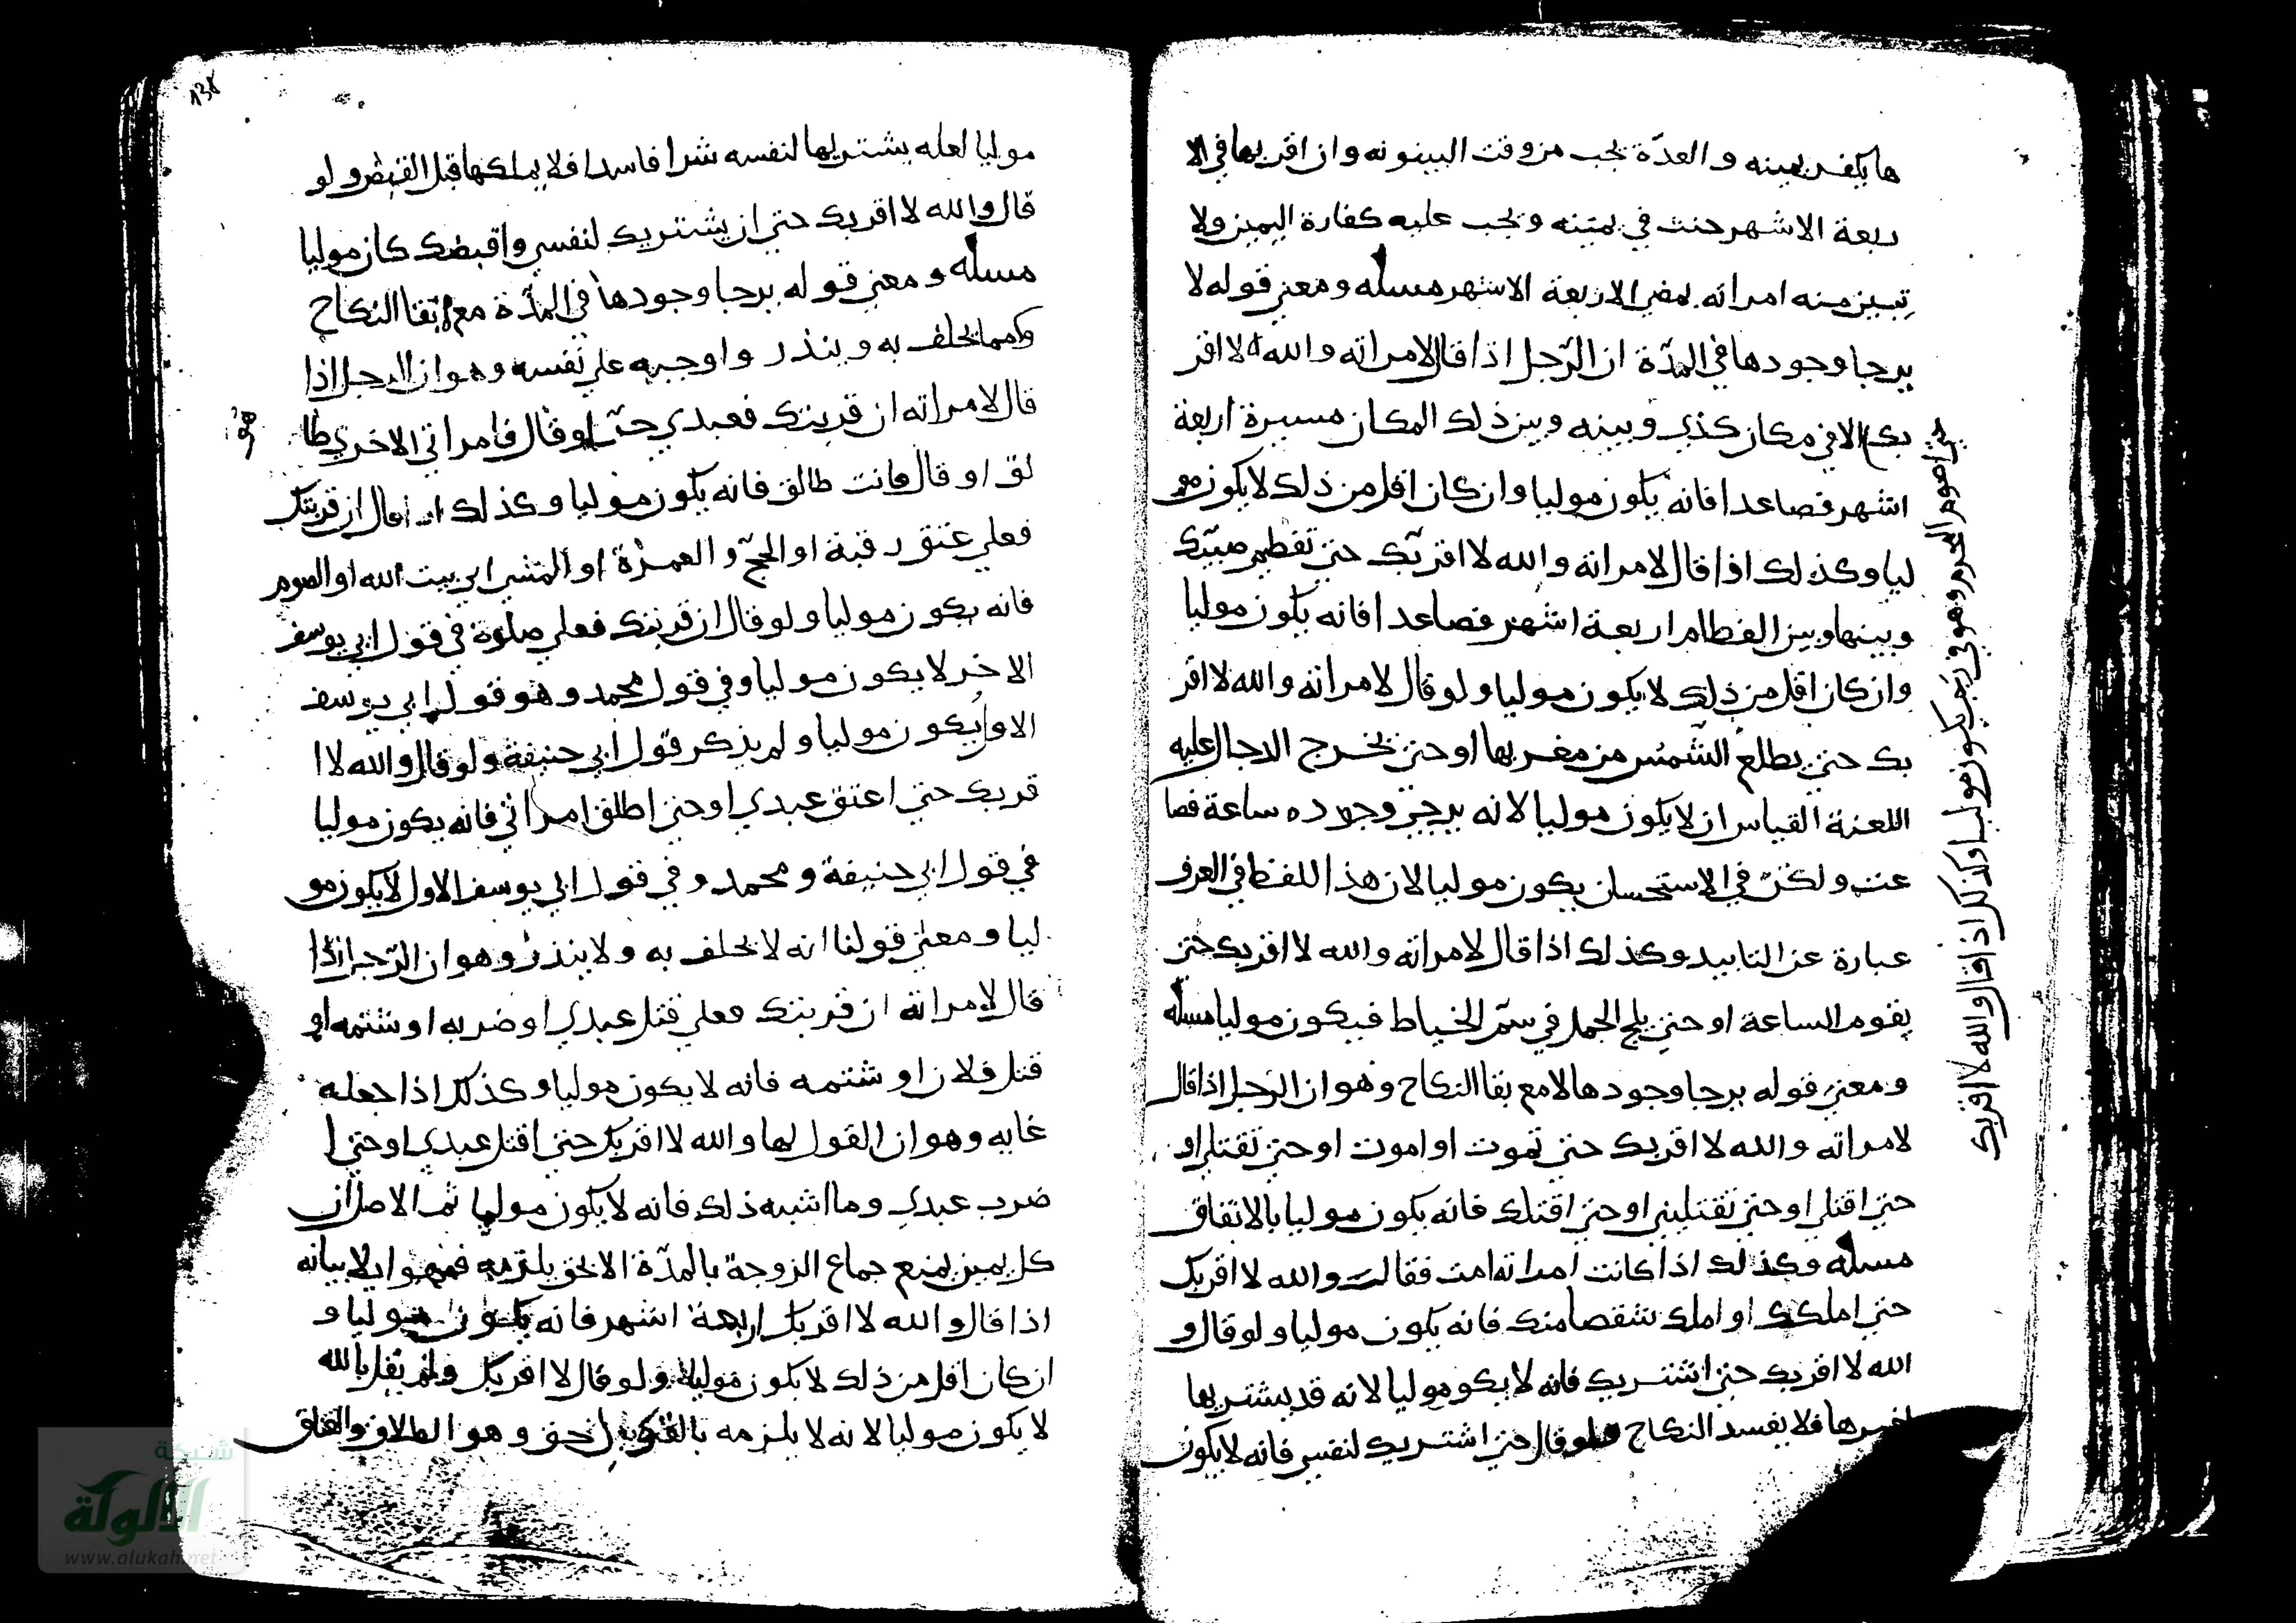 ها يكفر يمينه والعدّة تجب من وقت البينونه وان اقربها في الا
ربعة الاشهر حنث في يمينه وتجب عليه كفارة اليمين ولا
تبين منه امراته بمضي الاربعة الاشهر مسله ومعنى قوله لا
يرجا وجودها في المدّة ان الرّجل اذا قال لامراته والله لا اقر
بك الا في مكان كذي وبينه وبين ذلك المكان مسيرة اربعة
اشهر فصاعدا فانه يكون موليا وان كان اقل من ذلك لا يكون مو
ليا وكذلك اذا قال لامراته والله لا اقربك حتى تفطمي صبيّك
وبينها وبين الفطام اربعة اشهر فصاعدا فانه يكون موليا
وان كان اقل من ذلك لا يكون موليا ولو قال لامراته والله لا اقر
بك حتى يطلع الشّمس من مغربها او حتى يخرج الدجال عليه
اللعنة القياس ان لا يكون موليا لانه يرجى وجوده ساعة فسا
عت ولكن في الاستحسان يكون موليا لان هذا اللفظ في العرف
عبارة عن التابيد وكذلك اذا قال لامراته والله لا اقربك حتى
يقوم الساعة او حتى يلج الجمل في سمّ الخياط فيكون موليا مسله
ومعنى قوله يرجا وجودها لا مع بقا النكاح وهو ان الرّجل اذا قال
لامراته والله لا اقربك حتى تموت او اموت او حتى تقتلي او
حتى اقتل او حتى تقتليني او حتى اقتلك فانه يكون موليا بالاتفاق
مسله وكذلك اذا كانت امراته امت فقالت والله لا اقربك
حتى املكك او املك شقصا منك فانه يكون موليا ولو قال و
الله لا اقربك حتى اشتريك فانه لا يكو موليا لانه قد يشتريها
لغيرها فلا يفسد النكاح ولو قال حتى اشتريك لنفسي فانه لا يكون
حتى اصوم المحرم وهو في رجب يكون موليا وكذلك اذا قال والله لا اقربك
138
موليا لعله يشتريها لنفسه شرا فاسدا فلا يملكها قبل القبض ولو
قال والله لا اقربك حتى ان يشتريك لنفسي واقبضك كان موليا
مسله ومعنى قوله يرجا وجودها في المدّة مع بقا النكاح
وكمما يحلف به وينذر واوجبه على نفسه وهو ان الرجل اذا
قال لامراته ان قربتك فعبدي حرّ او قال فامراتي الاخرى طا
لق او قال فانت طالق فانه يكون موليا وكذلك اذا قال ان قربتك
فعلي عتق رقبة او الحجّ والعمرة او المشي الى بيت الله او الصوم
فانه يكون موليا ولو قال ان قربتك فعلي صلوة في قول ابي يوسف
الاخر لا يكون موليا وفي قول محمد وهو قول ابي يوسف
الاول يكون موليا ولم يذكر قول ابي حنيفة ولو قال والله لا ا
قربك حتى اعتق عبدي او حتى اطلق امراتي فانه يكون موليا
في قول ابي حنيفة ومحمد وفي قول ابي يوسف الاول لا يكون مو
ليا ومعنى قولنا انه لا يحلف به ولا ينذر وهو ان الرّجل اذا
قال لامراته ان قربتك فعلي قتل عبدي او ضربه او شتمه او
قتل فلان او شتمه فانه لا يكون موليا وكذلك اذا جعله
غايه وهو ان القول لها والله لا اقربك حتى اقتل عبدي او حتى ا
ضرب عبدي وما اشبه ذلك فانه لا يكون موليا ثم الاصل ان
كل يمين يمنع جماع الزوجة بالمدّة الا بحق يلتزمه فهو ايلا بيانه
اذا قال والله لا اقربك اربعة اشهر فانه يكون موليا و
ان كان اقل من ذلك لا يكون موليا ولو قال لا اقربك ولم يقل بالله
لا يكون موليا لانه لا يلزمه بالقربان حق وهو الطلاق والعتاق